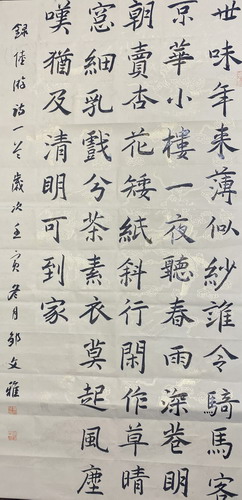 世味年来薄似紗誰令騎馬客
京華小樓一夜聽春雨深巷明
朝賣杏花矮紙斜行閑作草晴
窓細乳戲兮茶素衣莫起風塵
嘆猶及清明可到家
錄陸游诗一首歲次壬寅冬月邹文雅